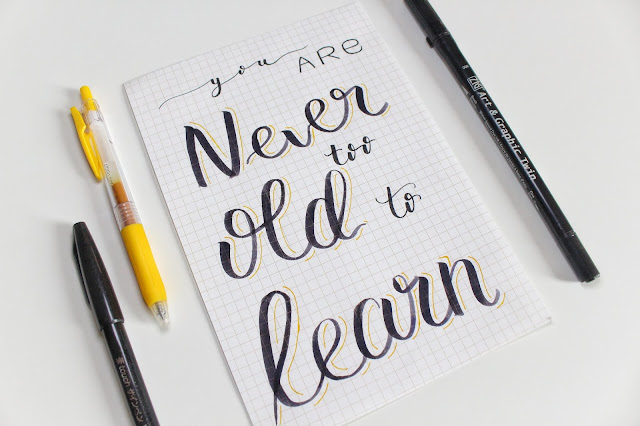 you ARe
Never
too
old to
learn
ZIG Art & Graphic Twin
touch サインペン